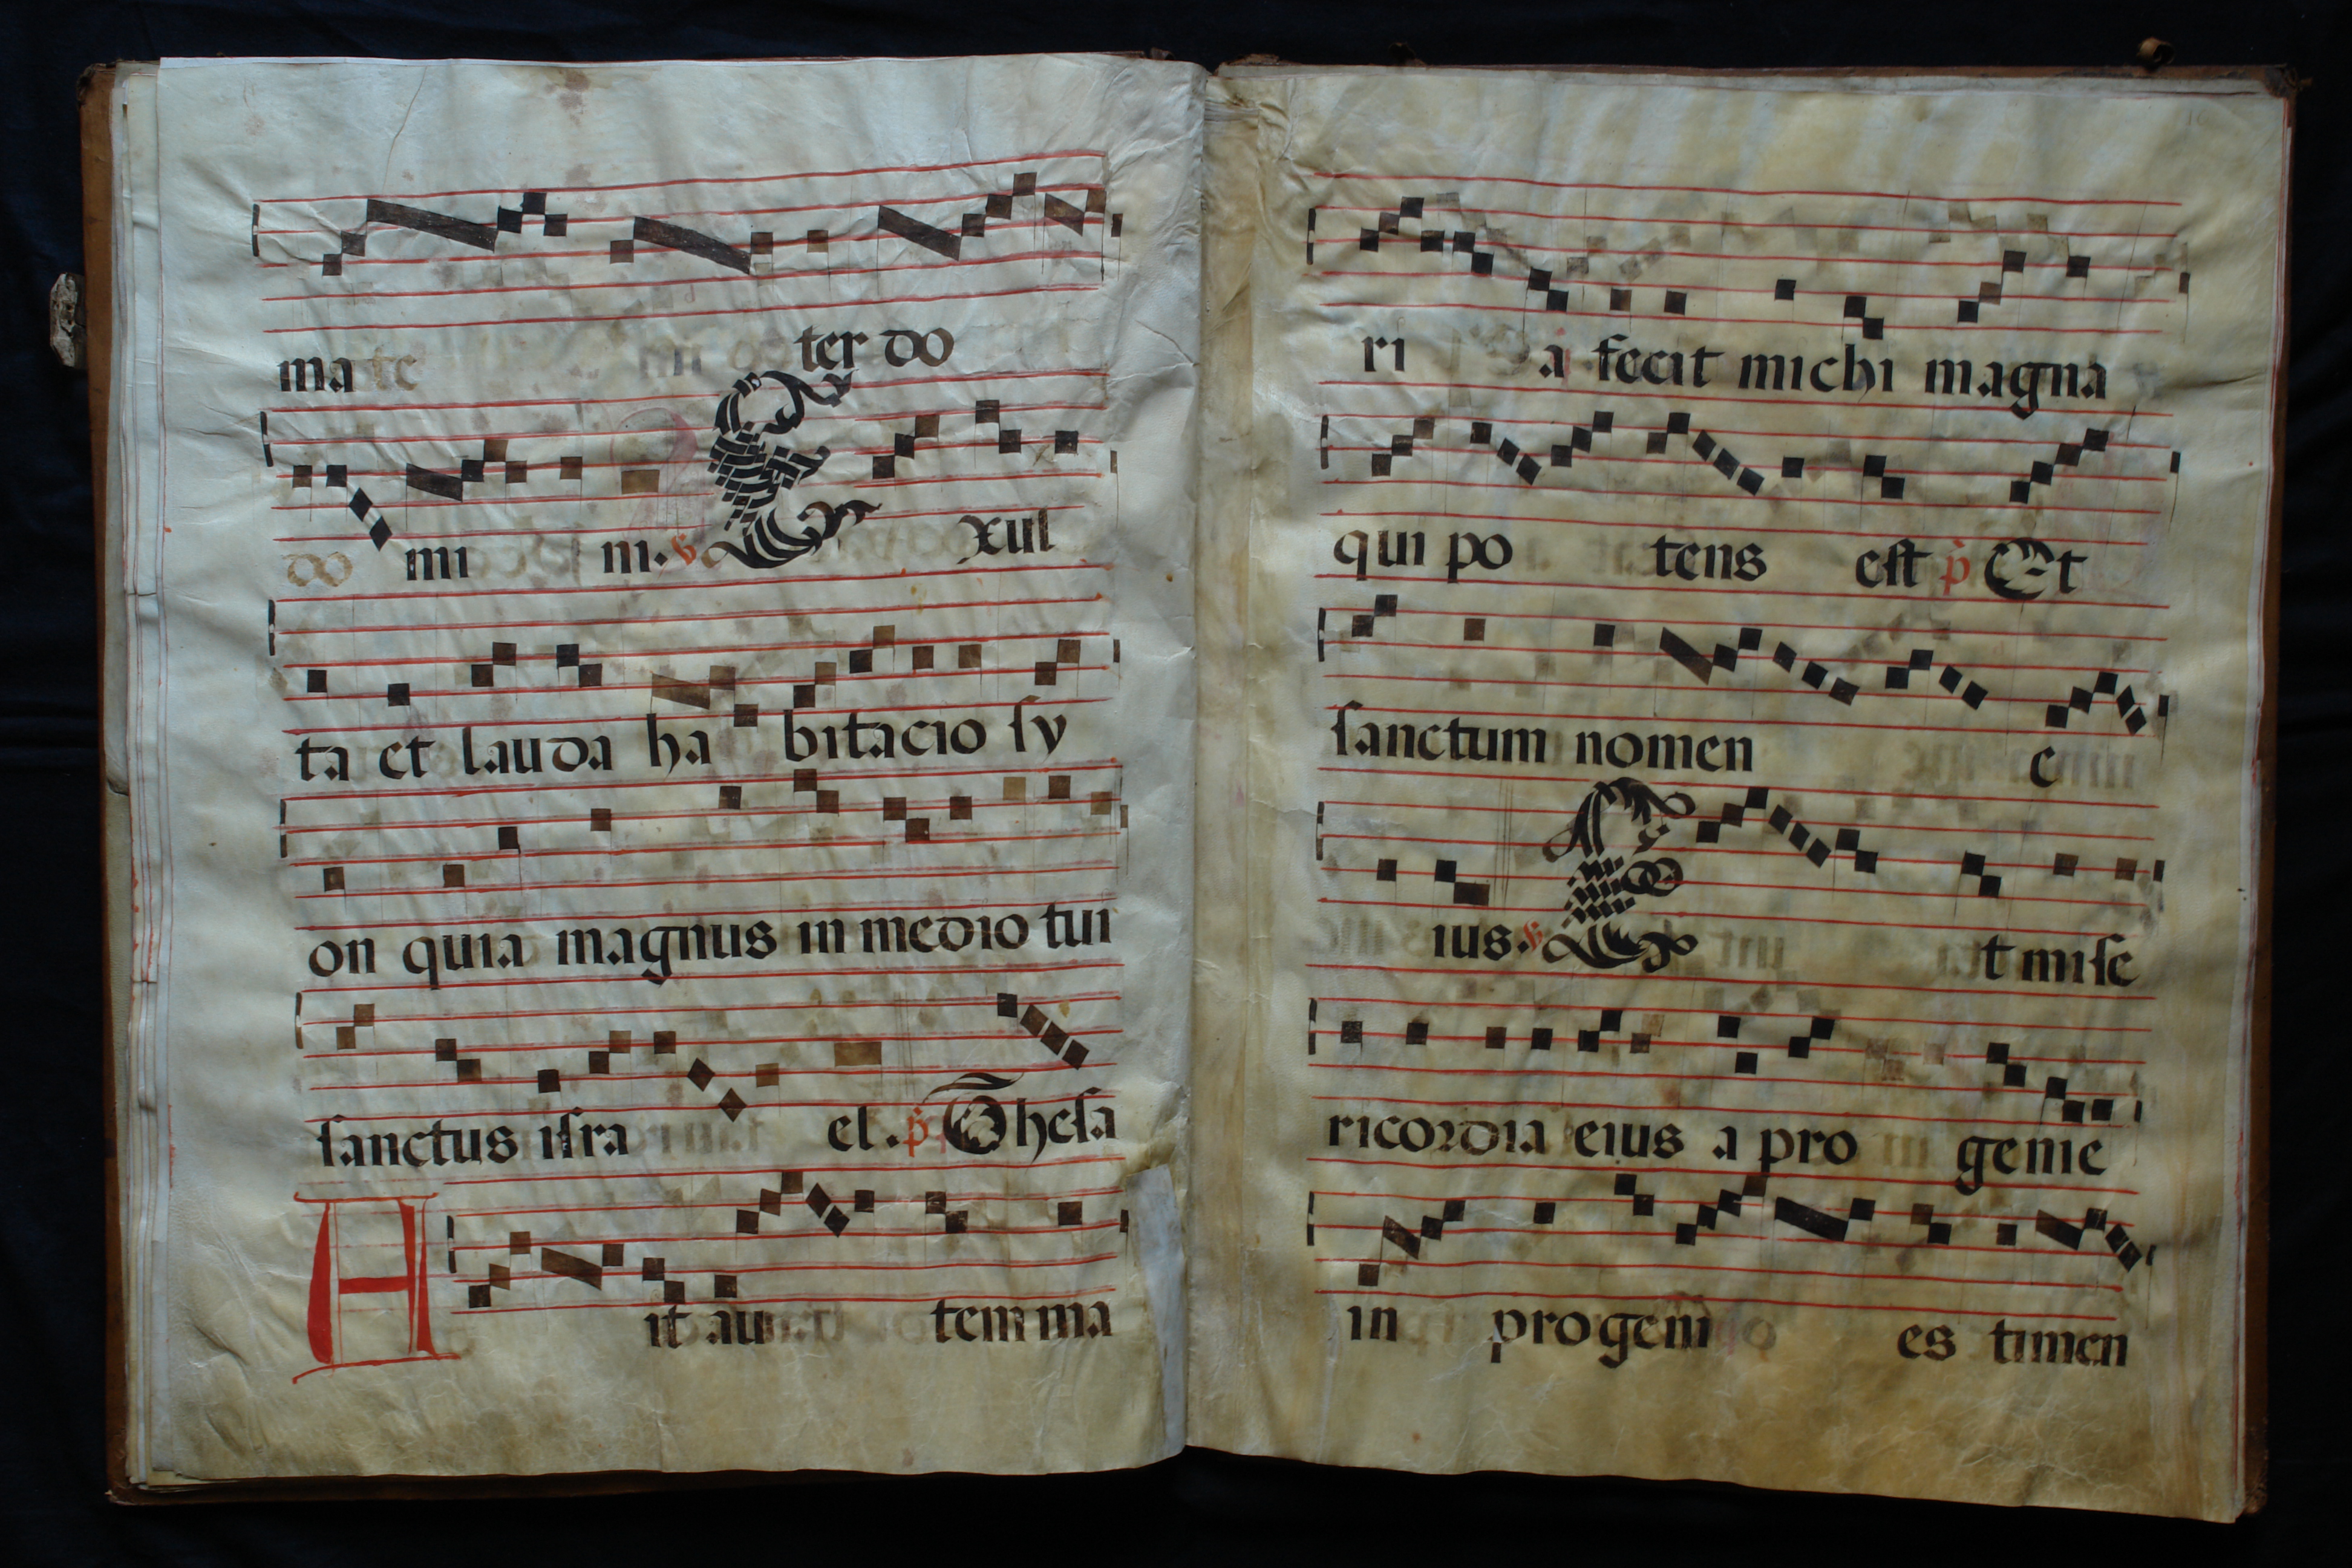 mate ter do
do mi ni. ℣ Exul
ta et lauda ha bitacio ſy
on quia magnus in medio tui
ſanctus iſra el. p̄ Theſa
Ait au tem ma
ri a fecit michi magna
qui po tens eſt p̄ Et
ſanctum nomen e
ius. ℣ Et miſe
ricordia eius a pro genie
in progeni es timen